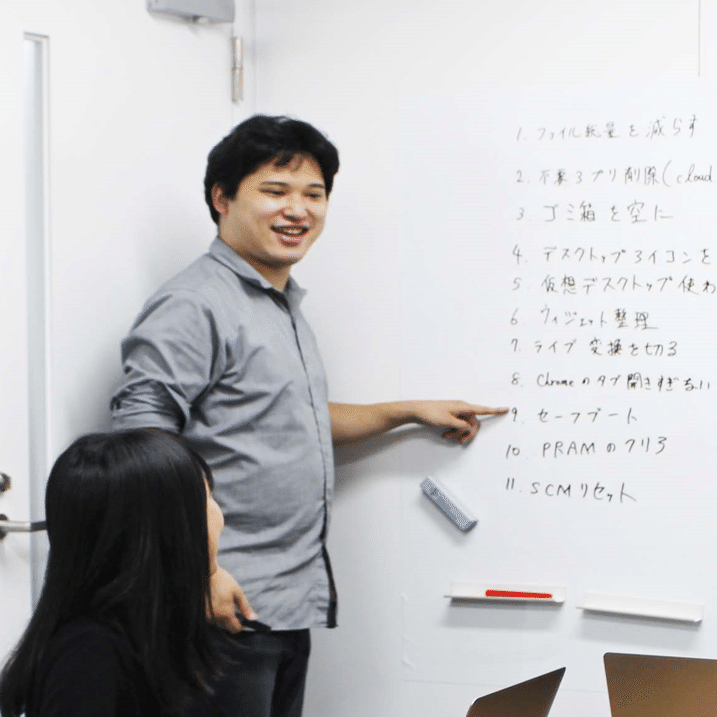 1. ファイル総量を減らす
2. 不要アプリ削除(cloud
3. ゴミ箱を空に
4. デスクトップアイコンを
5. 仮想デスクトップ使わ
6. ウィジェット整理
7. ライブ変換を切る
8. Chromeのタブ開きすぎない
9. セーフブート
10 PRAMのクリア
11. SCMリセット